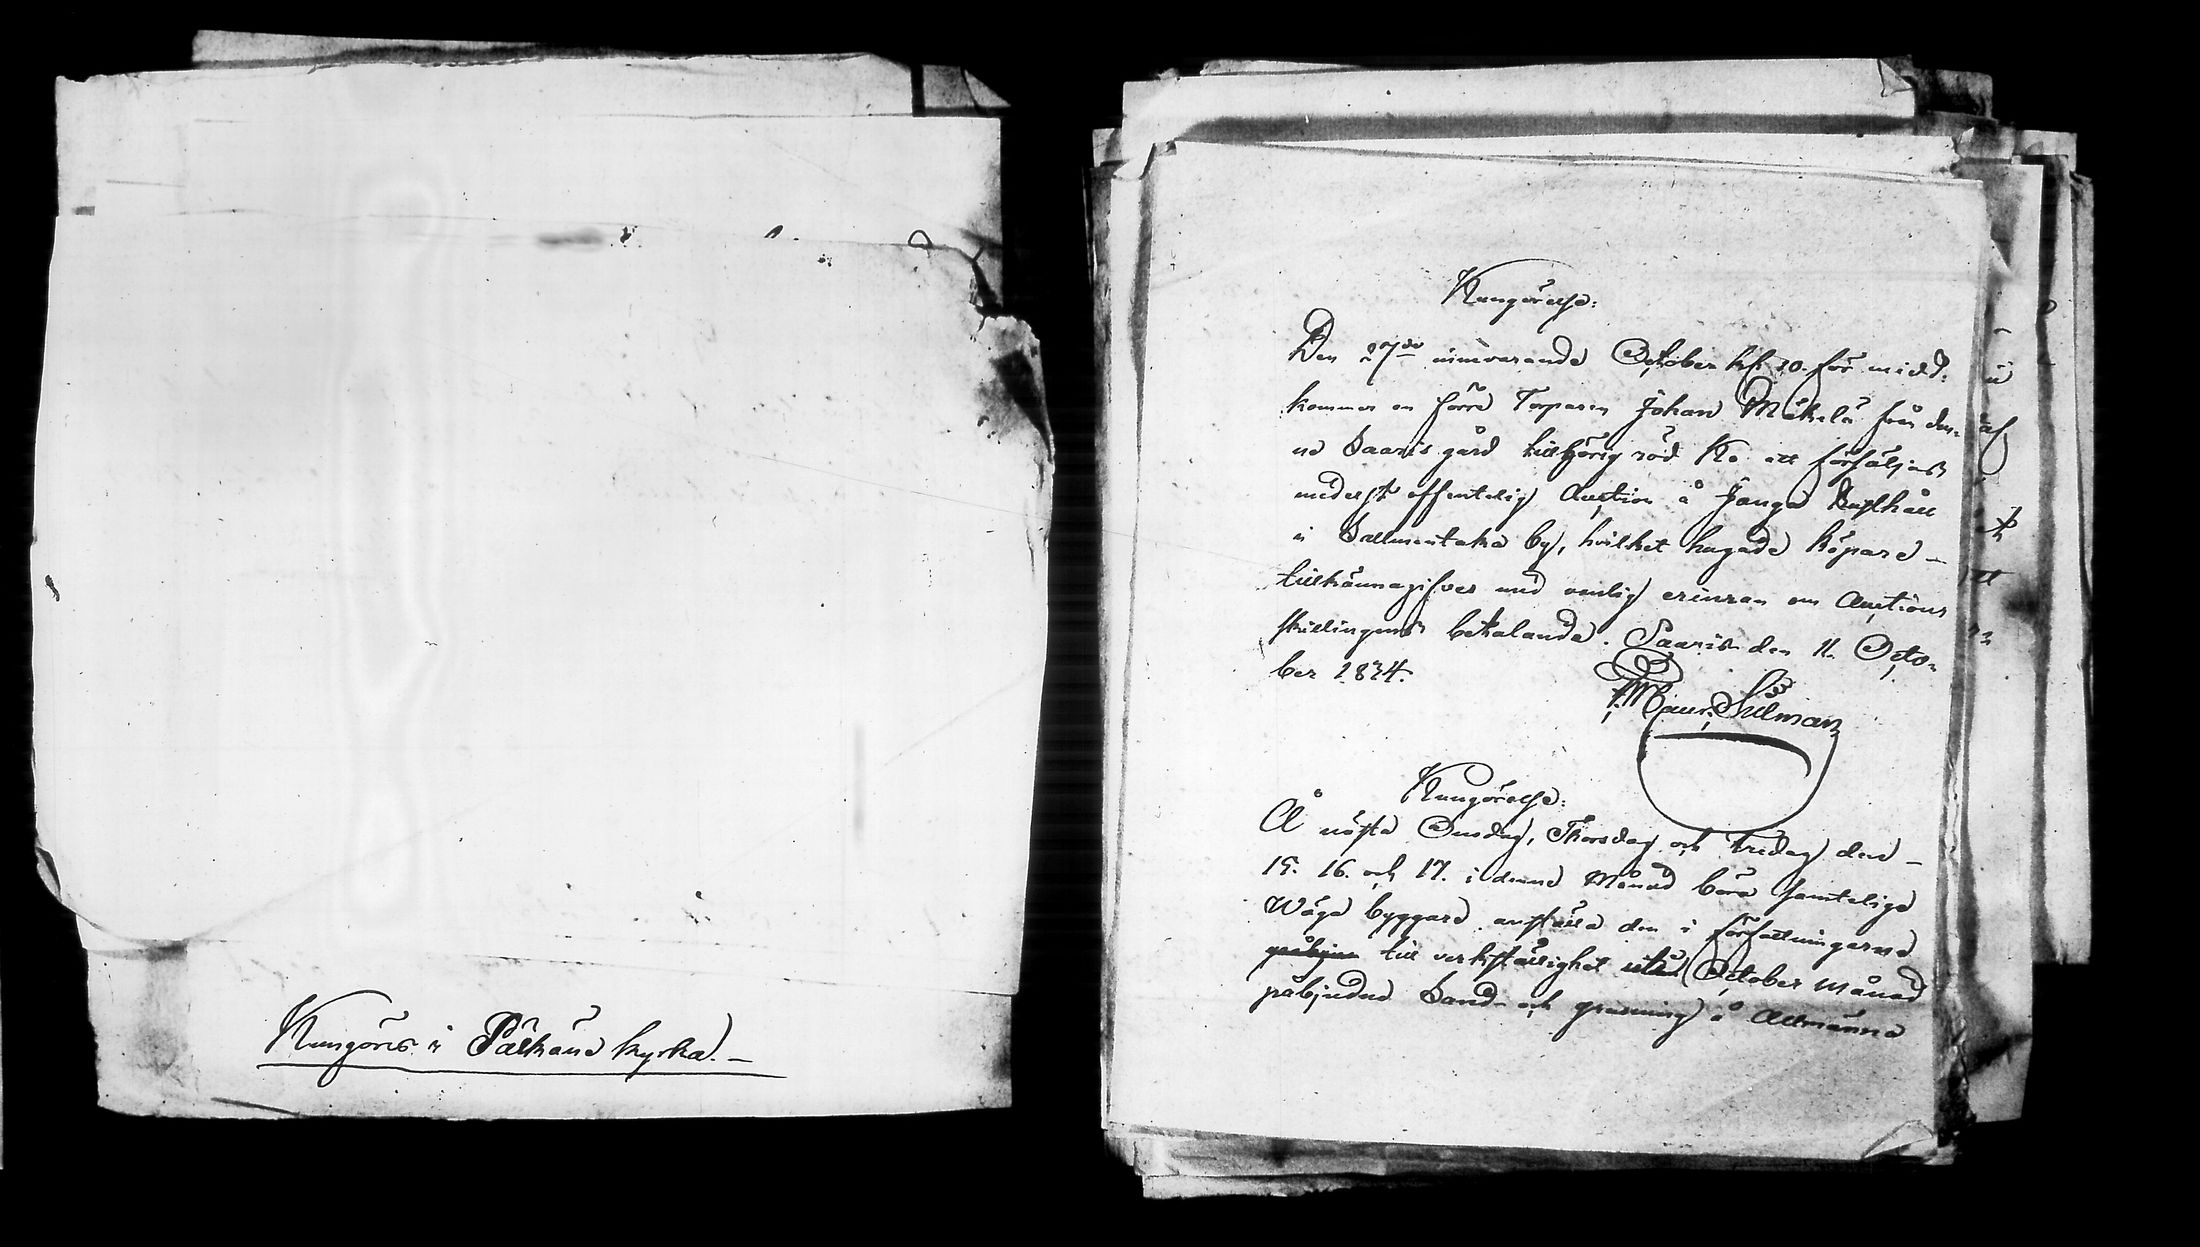 Kungöres i Pälkäne kyrka. —
Kungörelse:
Den 27de innevarande October kl. 10. för midd.
kommer en förre Torparen Johan Mäkelä från den-
na Saaris gård tillhörig röd Ko att försäljas
medelst offentelig Auction å Janga Rusthåll
i Sallmentaka by, hvilket hugade köpare —
tillkännagifves med vänlig erinran om Auctions
skillingens betalande. Saaris den 11. Octo-
ber 1834.
Maur. Silman
Kungörelse:
Å nästa Onsdag, Thorsdag och Fredag den —
15. 16. och 17. i denna Månad böra samtelige
Wäga byggare anställa den i författningarne
till verkställighet October Månad
påbjudna Sand- och grusning å Allmänna